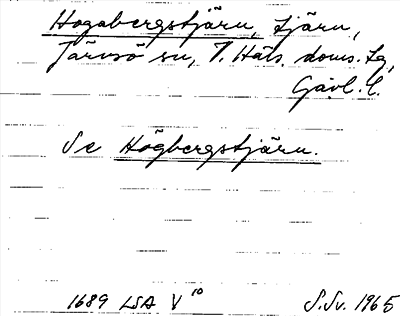 Hogabergstjärn, tjärn,
Järvsö sn, V. Häls. doms. Lg,
Gävl. l.
Se Högbergstjärn.
1689 LSA V 10
S.Sv. 1965